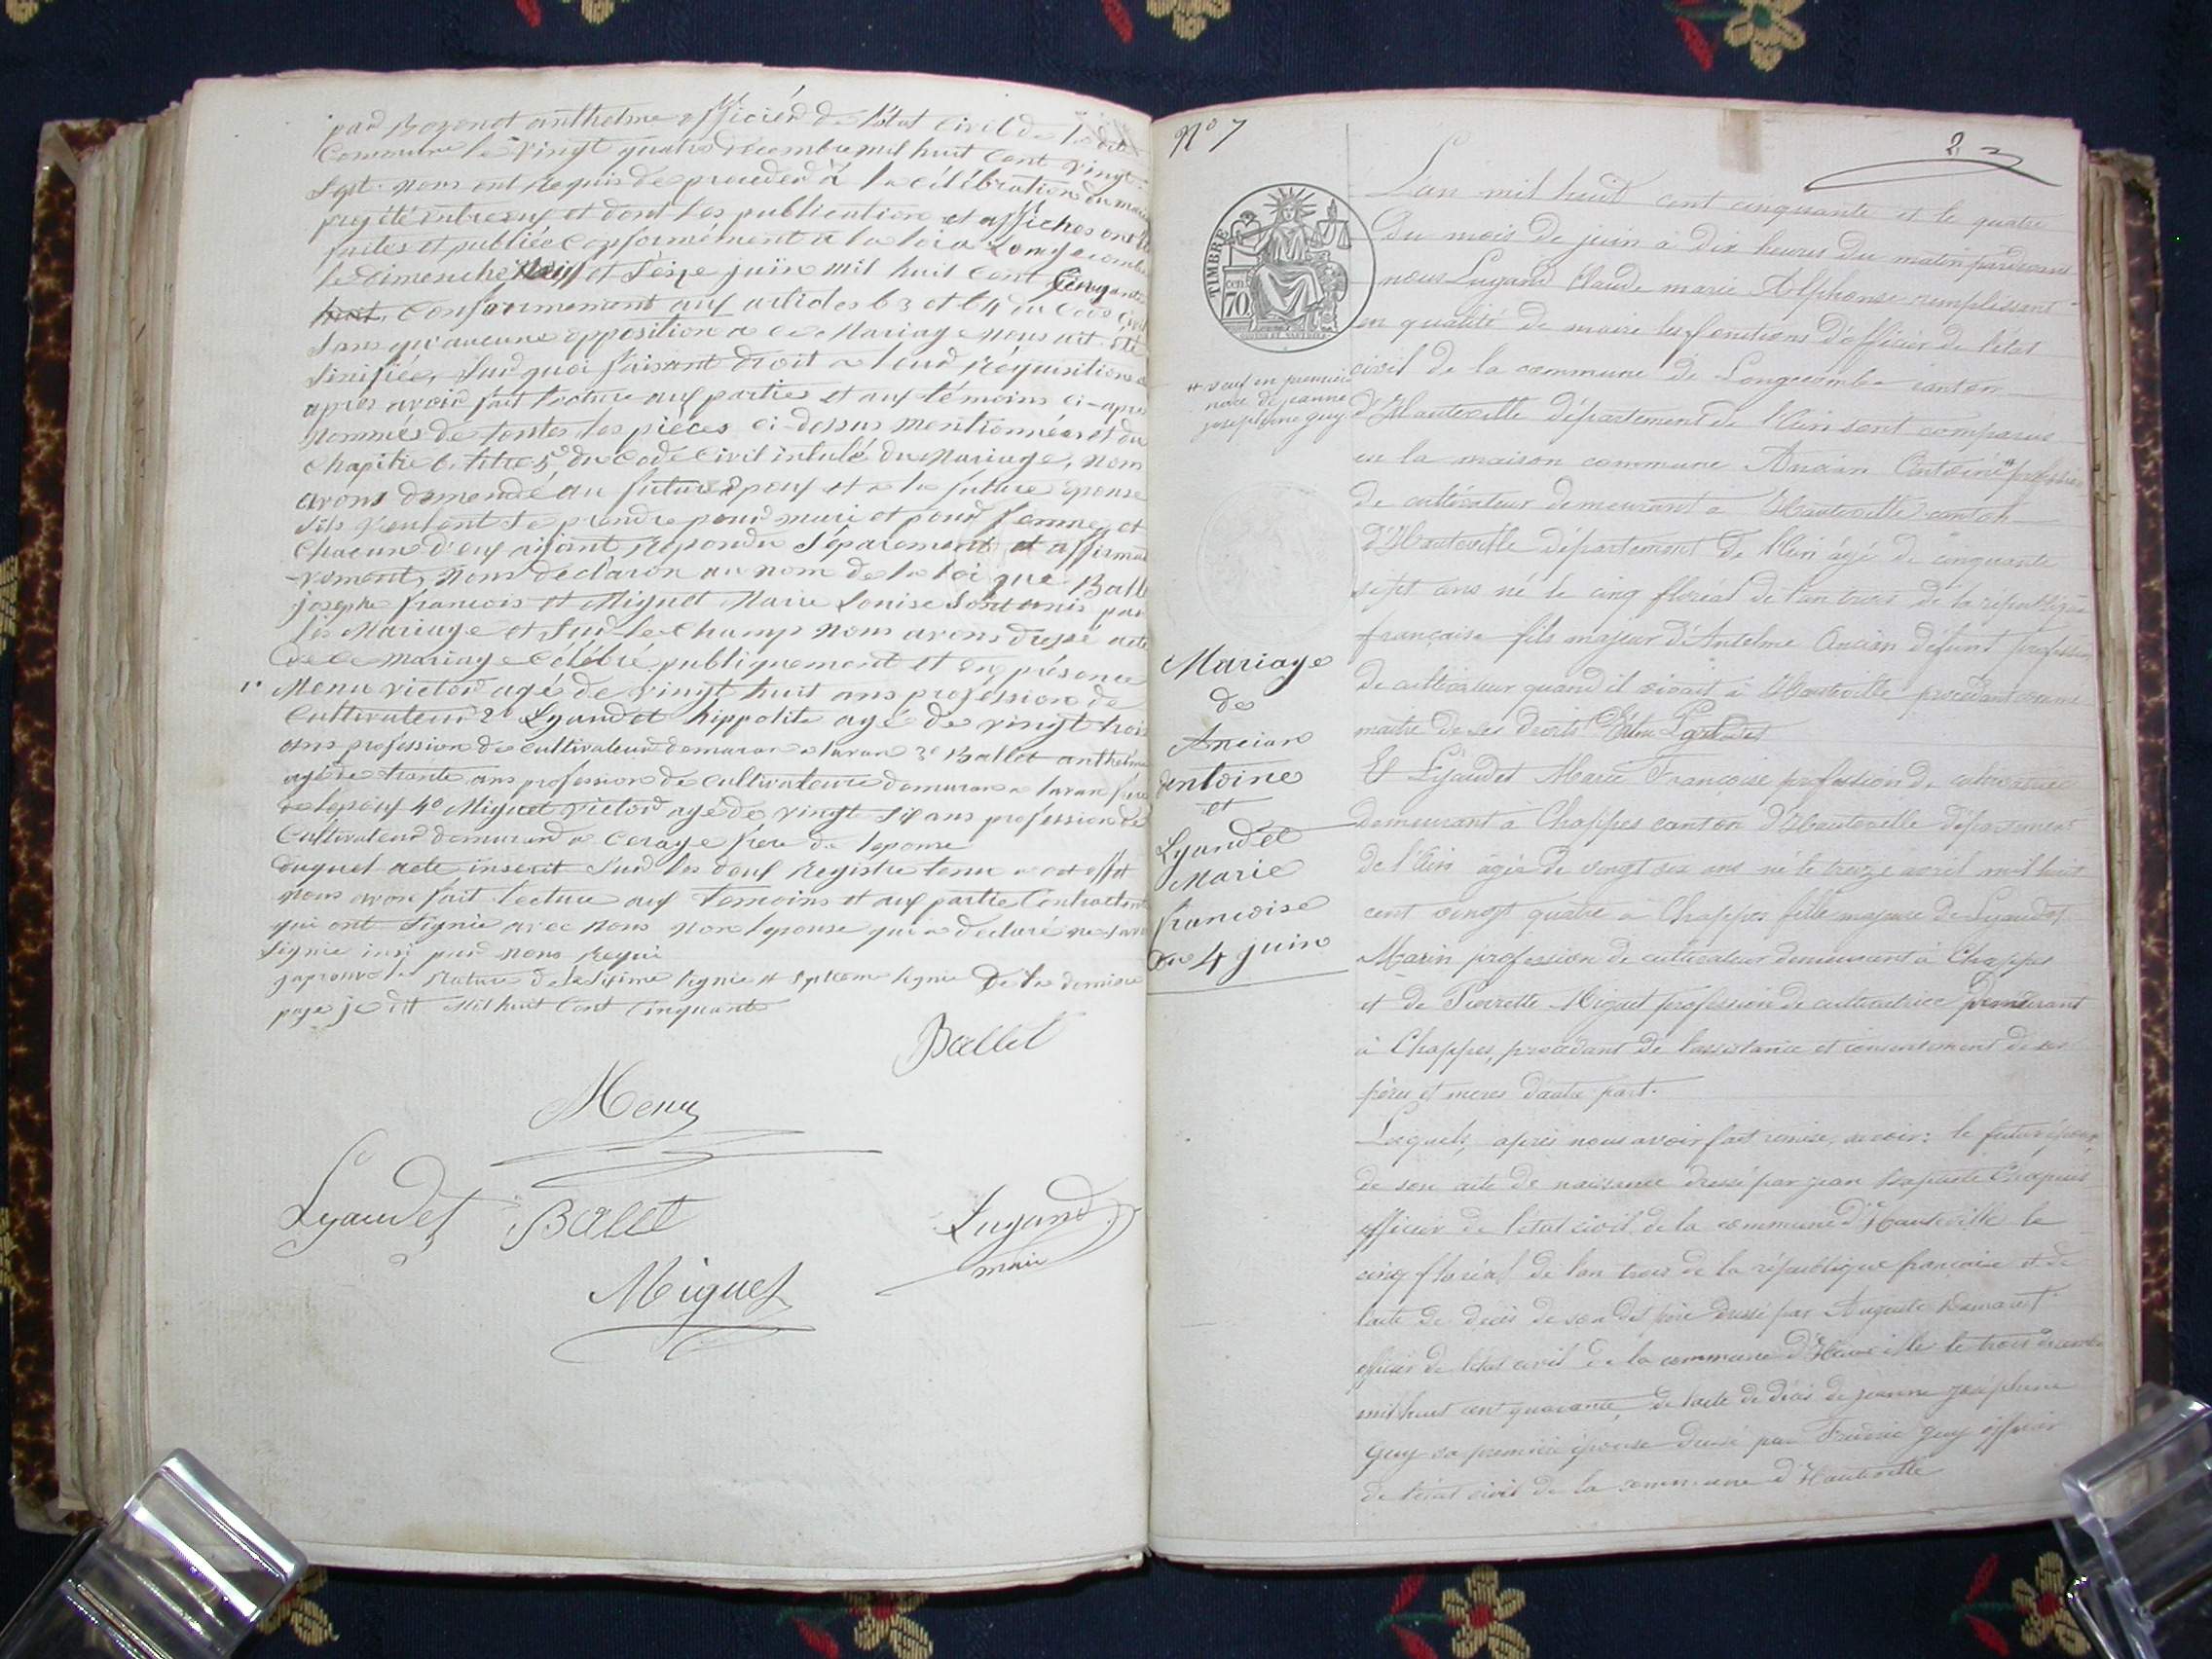 par Bozonet anthelme officier de l'état civil de la dite
Commune le vingt quatre décembre mil huit cent vingt
sept. nous ont requis de procéder à la célébration du mari
projeté entre eux et dont les publication et affiches ont
faites et publiée Conformément à la loi a Longecombe
le dimenche neuf et seize juin mil huit cent cinquante
huit Conformement aux articles 63 et 64 du Code civil
sans qu'aucune opposition a ce Mariage nous ait été
sinifiée, Sur quoi faisant droit a leur Réquisitions
après avoir fait lecture aux parties et aux témoins ci-après
Nommés de toutes les pièces ci-dessus mentionnées et du
chapitre 6. titre 5e du Code Civil intulé du Mariage, nous
avons demendé au futur epoux et a la future épouse
s'ils veulent se prendre pour mari et pour femme, et
Chacun d'eux aiyant repondu séparement et affirmati
vement, nous declaron au nom de la loi que Ball
joseph francois et Miguet Marie Louise sont unis par
les Mariage et sur le champ nous avons dressé acte
de ce mariage célébré publiquement et en présence
1° Menu victor agé de vingt huit ans profession de
Cultivateur 2° Lyaudet hippolite agé de vingt trois
ans profession de cultivateur demuran a laran 3° Ballet anthelme
agé de trante ans profession de cultivateure demuran a laran frère
de lepoux 4° Miguet victor agé de vingt six ans profession de
Cultivateur demurand a Cerage frère de leponse
duquel acte inscrit sur les deux Registre tenu a cet effet
nous avon fait lecture aux temoins et aux partie Contractente
qui ont signie avec nous non lepouse qui a declaré ne savoir
signie insi par nous Requi
japrouve la rature de la sixime lignie et septieme lignie de la derniere
page je dit mil huit Cent Cinquante
Ballet
Menu
Lyaudet Ballet
Lugand
maire
Miguet
N° 7
2
TIMBRE
70
L'an mil huit cent cinquante et le quatre
du mois de juin à dix heures du matin pardevant
nous Lugand Claude marie Alphonse remplissant
en qualité de maire les fonctions d'officier de l'état
civil de la commune de Longecombe canton
d'Hauteville département de l'Ain sont comparus
en la maison commune Ancian Antoine # profession
de cultivateur demeurant a Hauteville canton
d'Hauteville département de l'Ain âgé de cinquante
sept ans né le cinq floréal de l'an trois de la république
française fils majeur d'Antelme Ancian défunt profession
de cultivateur quand il vivait à Hauteville procédant comme
maitre de ses droits d'une part
Et Lyaudet Marie Françoise profession de cultivatrice
demeurant à Chappes canton d'Hauteville département
de l'Ain âgée de vingt six ans né le treize avril mil huit
cent vingt quatre à Chappes fille majeure de Lyaudet
Marin profession de cultivateur demeurant à Chappes
et de Pierrette Miguet profession de cultivatrice demeurant
à Chappes, procédant de l'assistance et consentement de ses
père et meres d'autre part.
Lesquels, après nous avoir fait remise, savoir: le futur époux
de son acte de naissance dressé par jean Baptiste Chapuis
officier de l'état civil de la commune d'Hauteville le
cinq floréal de l'an trois de la république française et de
l'acte de décès de son dit père dressé par Auguste
officier de l'état civil de la commune d'Hauteville le trois décembre
mil huit cent quarante, de l'acte de décès de jeanne joséphine
Guy sa première épouse dressé par Guy officier
de l'état civil de la commune d'Hauteville
# veuf en première
noce de jeanne
josephine guy
Mariage
de
Ancian
antoine
et
Lyaudet
Marie
francoise
du 4 juin